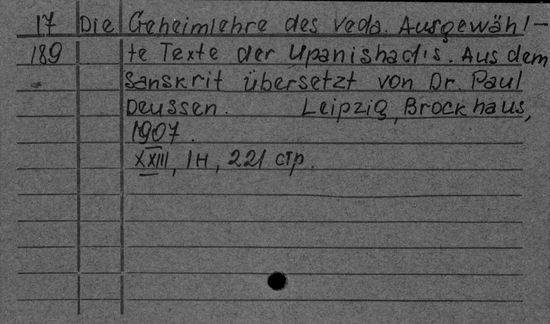 17 Die Geheimlehre des Veda. Ausgewähl-
189 te Texte der Upanishad's. Aus dem
Sanskrit übersetzt von Dr. Paul
Deussen. Leipzig, Brockhaus,
1907.
XXIII, 1н, 221 стр.